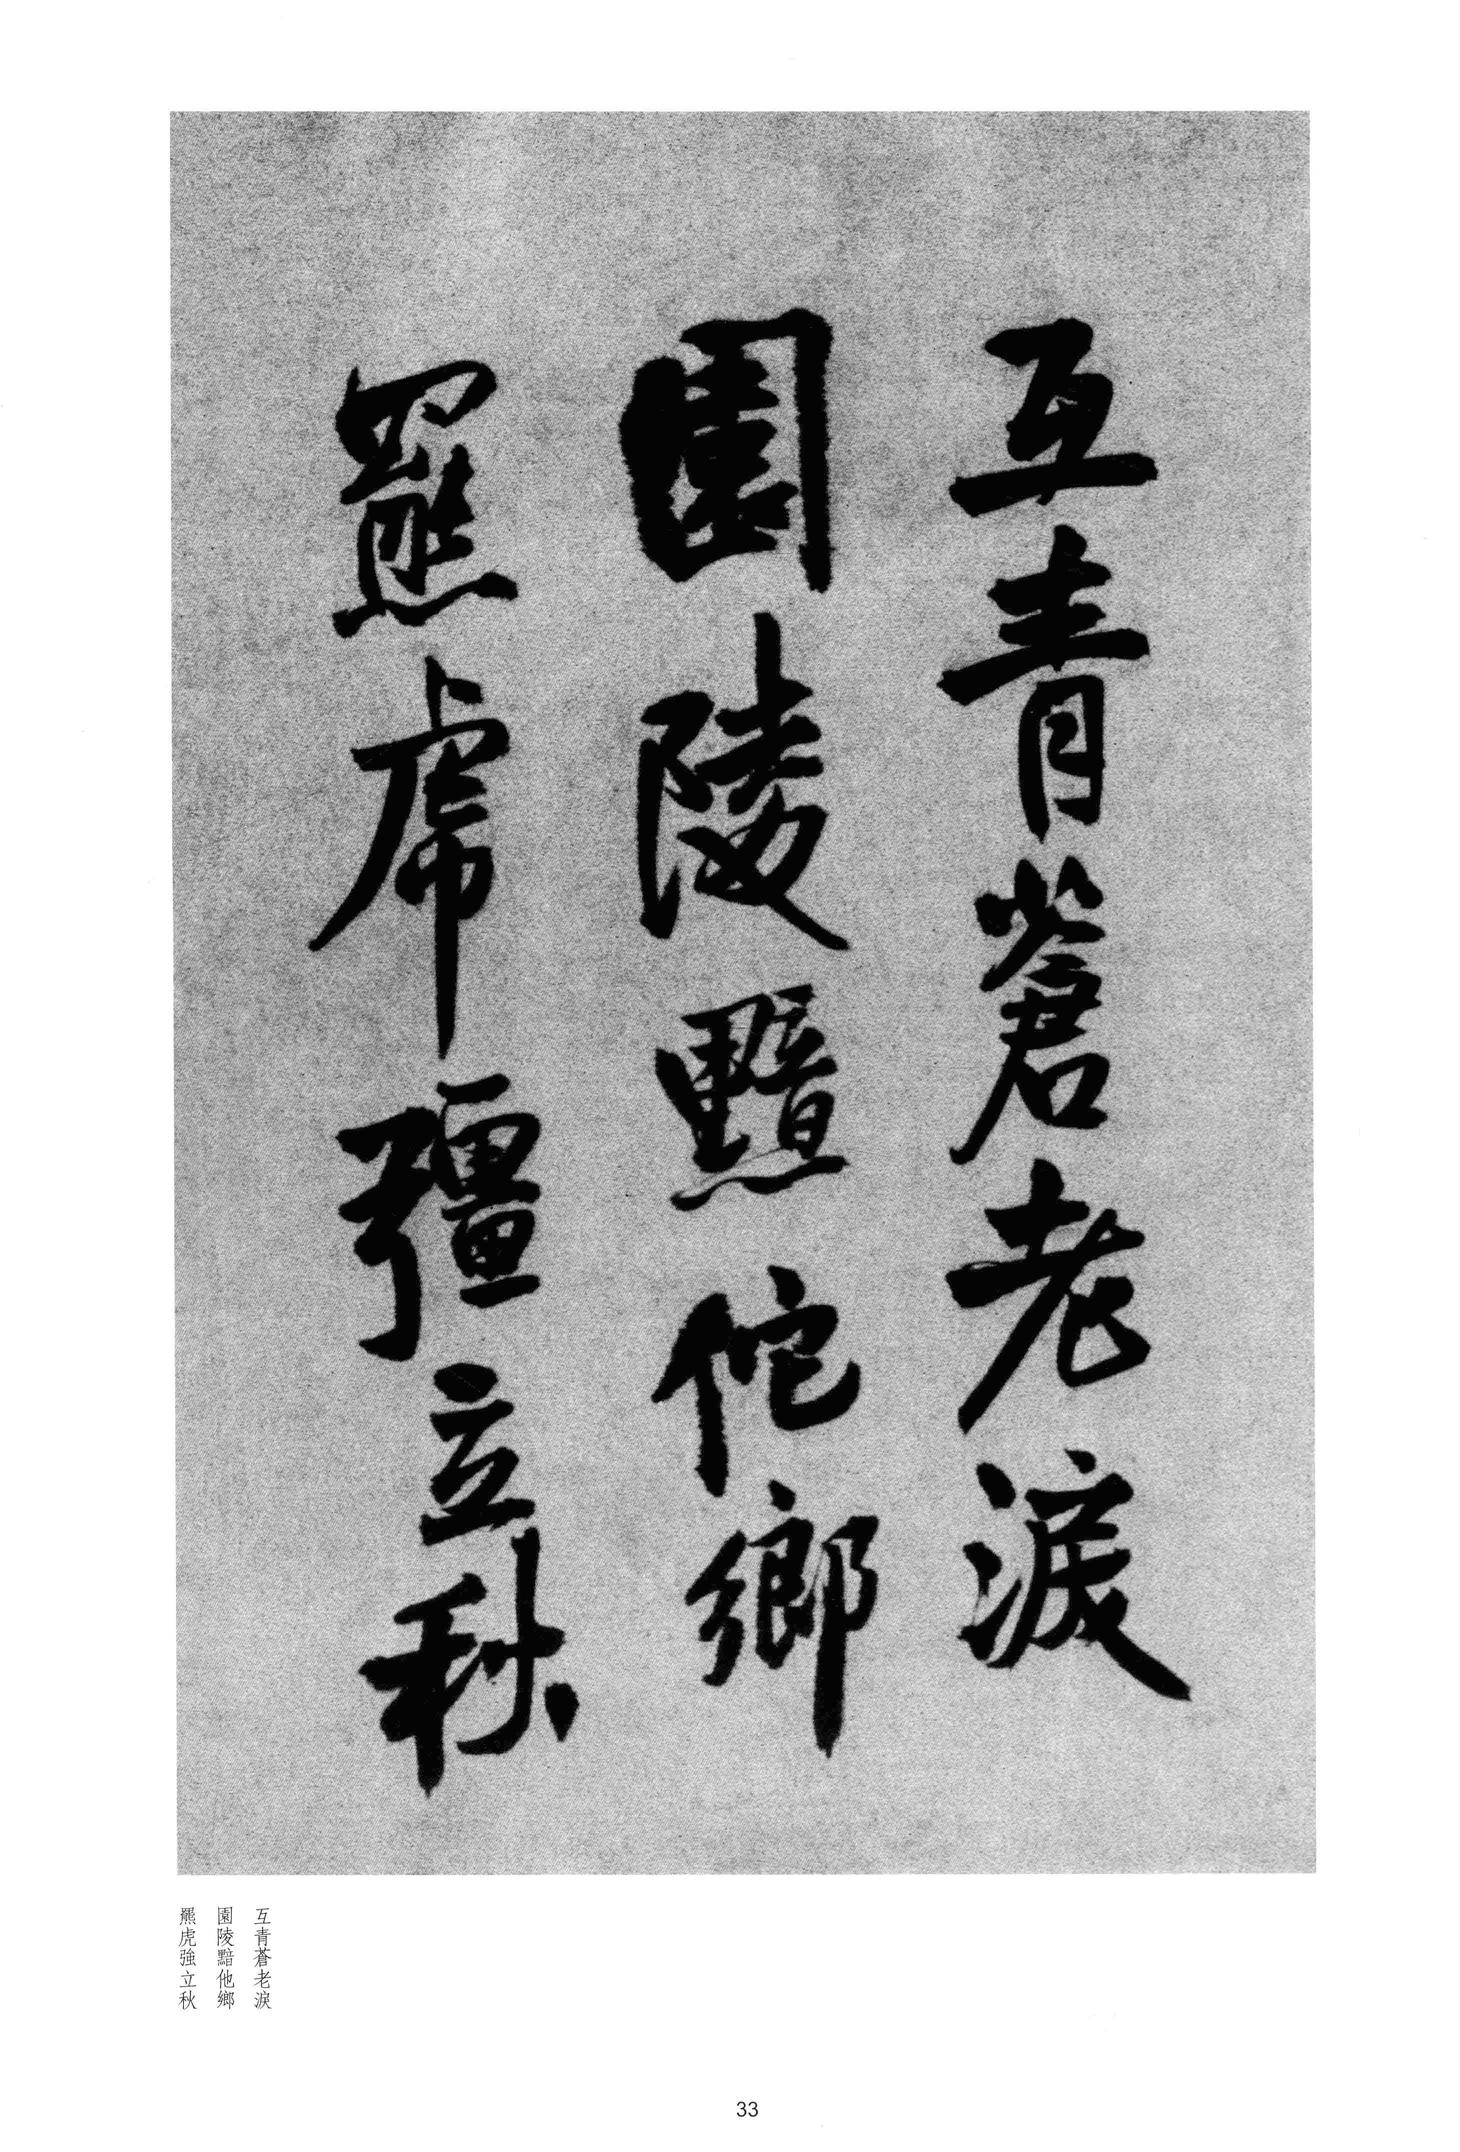 互青蒼老淚
園陵黯佗鄉
羆虎彊立秋
互青蒼老淚
園陵黯他鄉
羆虎強立秋
33